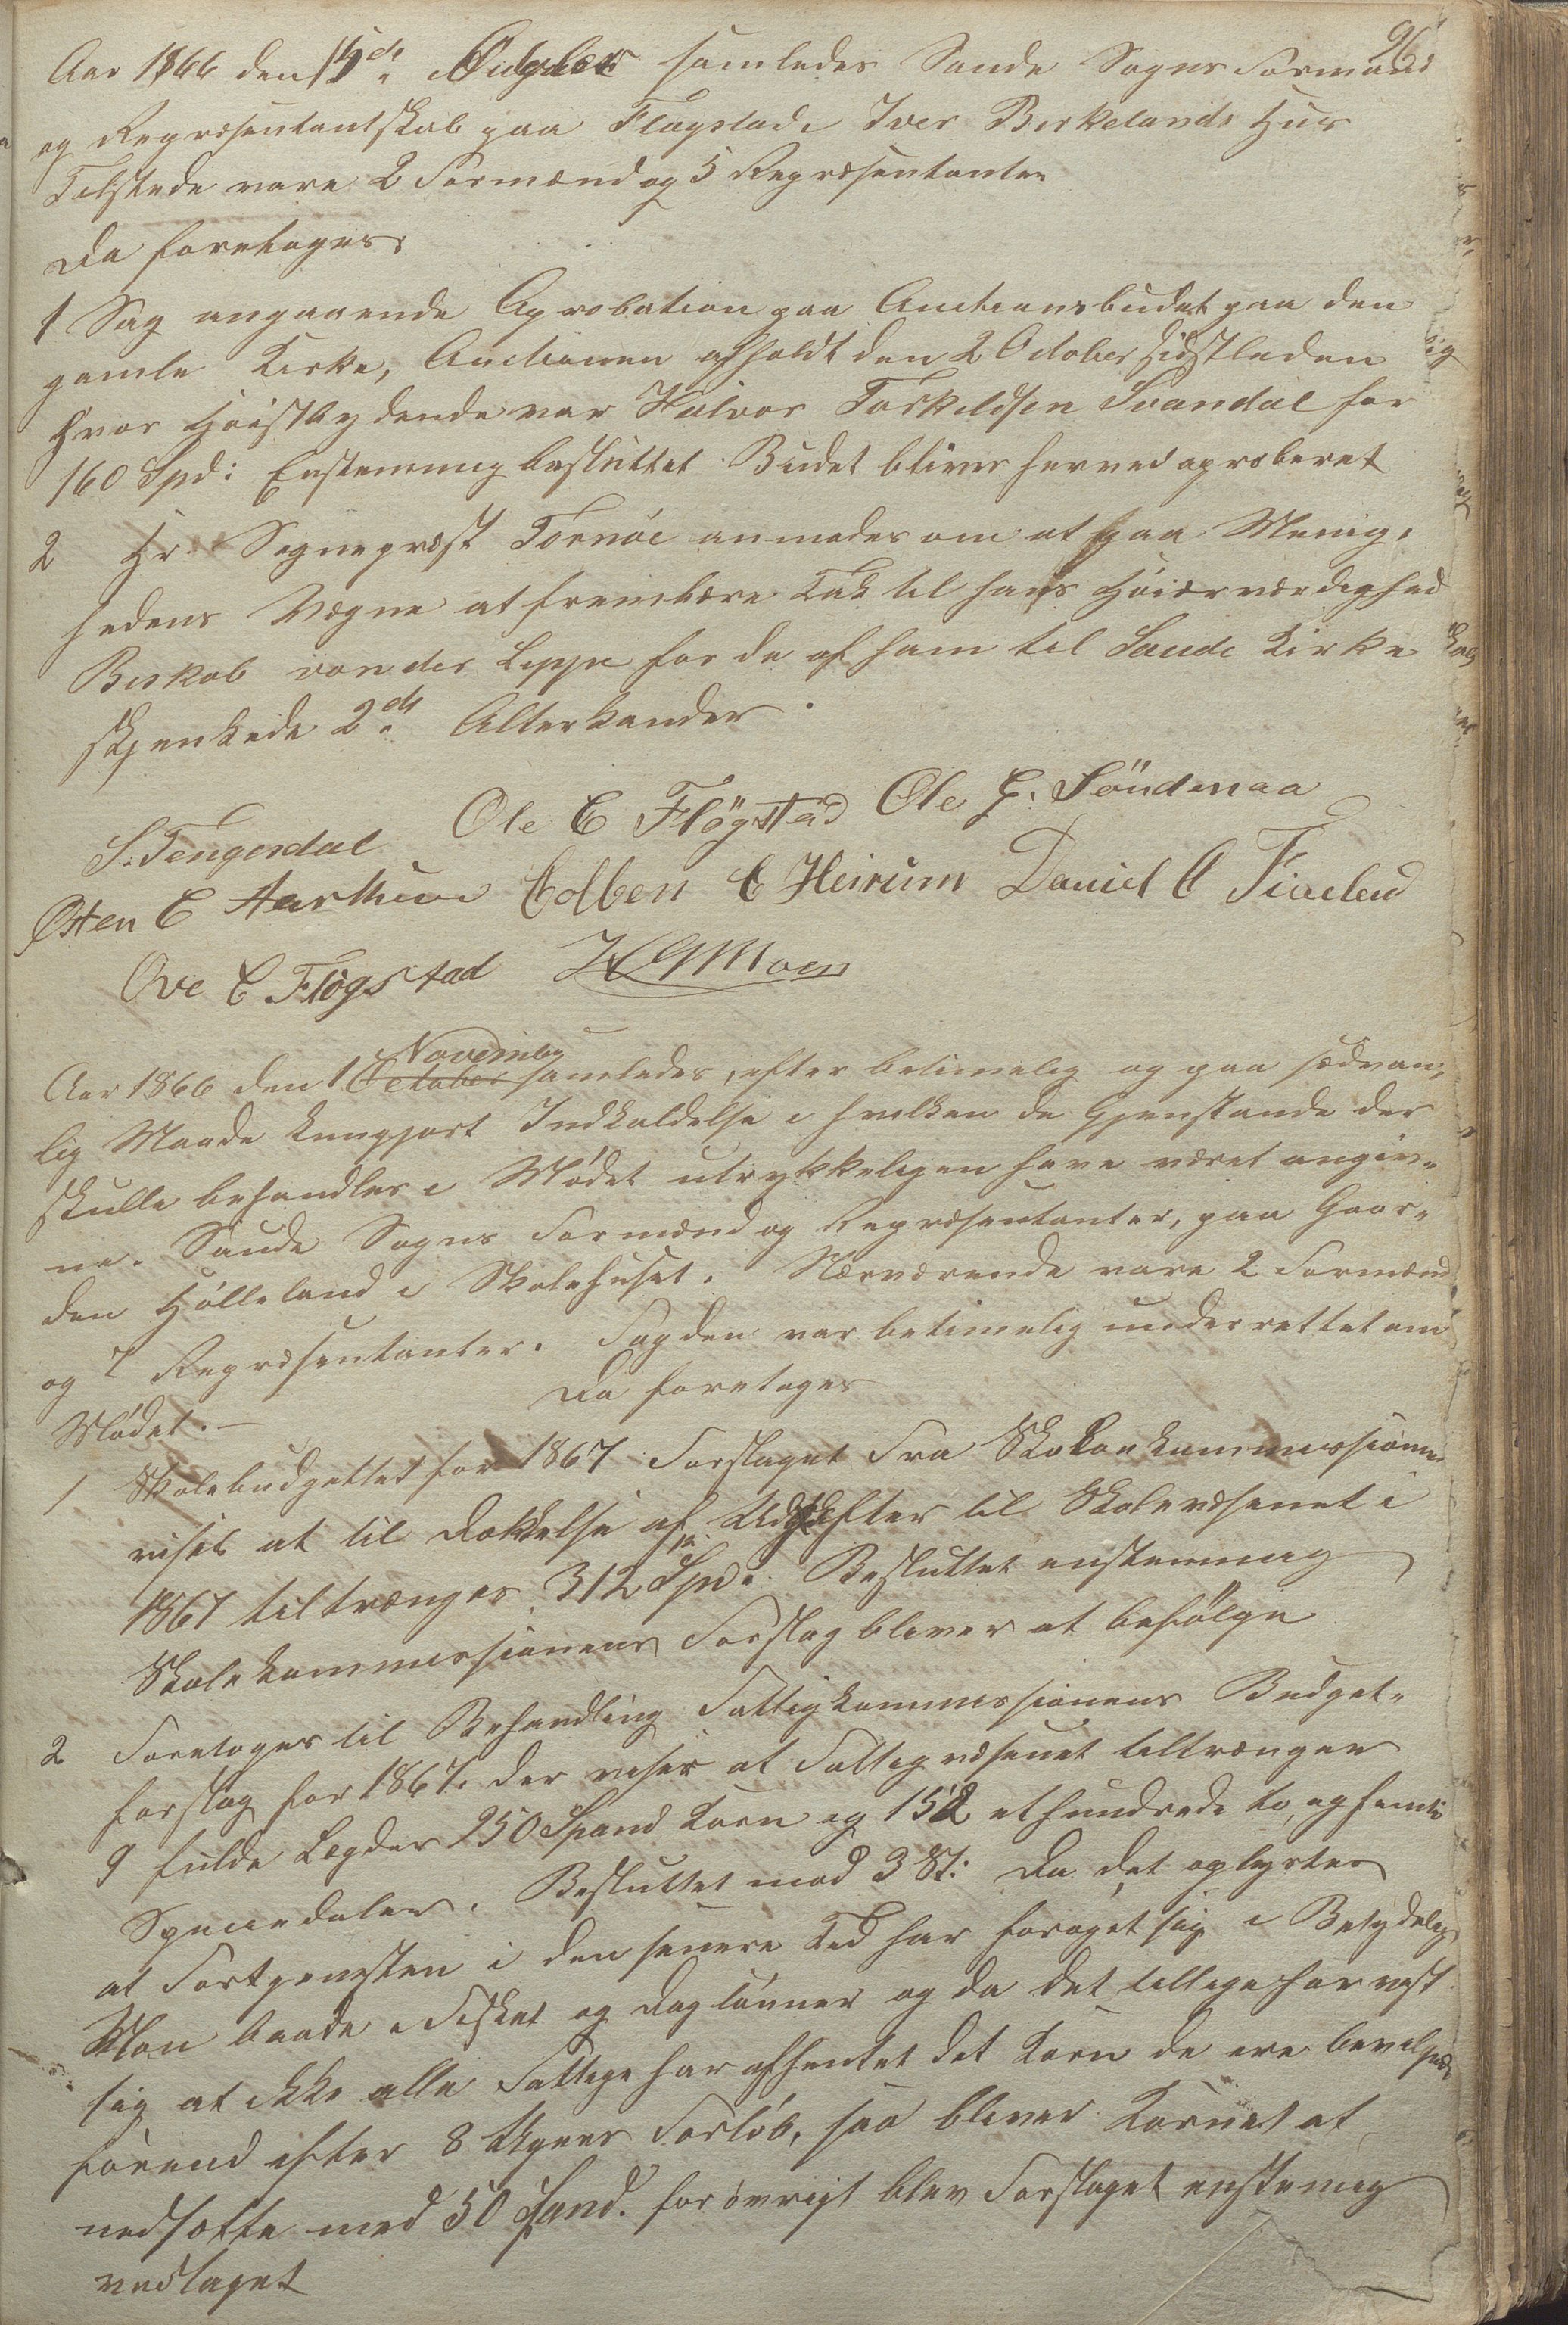 96
Aar 1866 den 15de October samledes Saude Sogns Formænd
og Repræsentantskab paa Fløgstad i Iver Birkelands Huus
Tilstede vare 2 Formænd og 5 Repræsentanter
Da foretoges:
1 Sag angaaende Aprobation paa Auctionsbudet paa den
gamle Kirke, Auctionen afholdt den 2 October sidstleden
hvor Høistbydende var Halvor Torkildsen Svandal for
160 Spd: Enstemmig besluttet Budet bliver herved aproberet
2 Hr. Sognepræst Tornöe anmodes om at paa Menig-
hedens Vægne at frembære Tak til hans Høiærværdighed
Biskob von der Lippe for de af ham til Saude Kirke
skjenkede 2de Alterkander.
S. Tengesdal Ole E Flögstad Ole G. Söndenaa
Østen E Aarthuun E Heirum Daniel O
Ove E Flögstad
November
Aar 1866 den 1 October samledes, efter betimelig og paa sædvan-
lig Maade kungjort Indkaldelse i hvilken de Gjenstande der
skulle behandles i Mødet utrykkeligen have været angiv-
ne. Saude Sogns Formænd og Repræsentanter, paa Gaar-
den Hølleland i Skolehuset. Nærværende vare 2 Formænd
og 7 Repræsentanter. Fogden var betimelig underrettet om
Mødet. —
Da foretoges
1 Skolebudgettet for 1867 Forslaget fra Skolekommissionen
viser at til Dækkelse af Udgifter til Skolevæsenet i
1867 tiltrænges 312 Spd. Besluttet enstemmig
Skolekommissionens Forslag bliver at befølge
2 Foretoges til Behandling Fattigkommissionens Budget-
forslag for 1867. der viser at Fattigvæsenet tiltrænger
9 fulde Lægder 250 Spand Korn og 152 ethundrede to og femti
Speciedaler. Besluttet mod 3 St: Da det oplystes
at Fortjenesten i den senere Tid har forøget sig i Betydelig
Mon baade i Fisket og Daglønner og da det tillige har vist
sig at ikke alle Fattige har afhentet det Korn de ere bevilgede
førend efter 8 Ugers Forløb, saa bliver Kornet at
nedsætte med 50 Spand. forøvrigt blev Forslaget enstemig
vedtaget